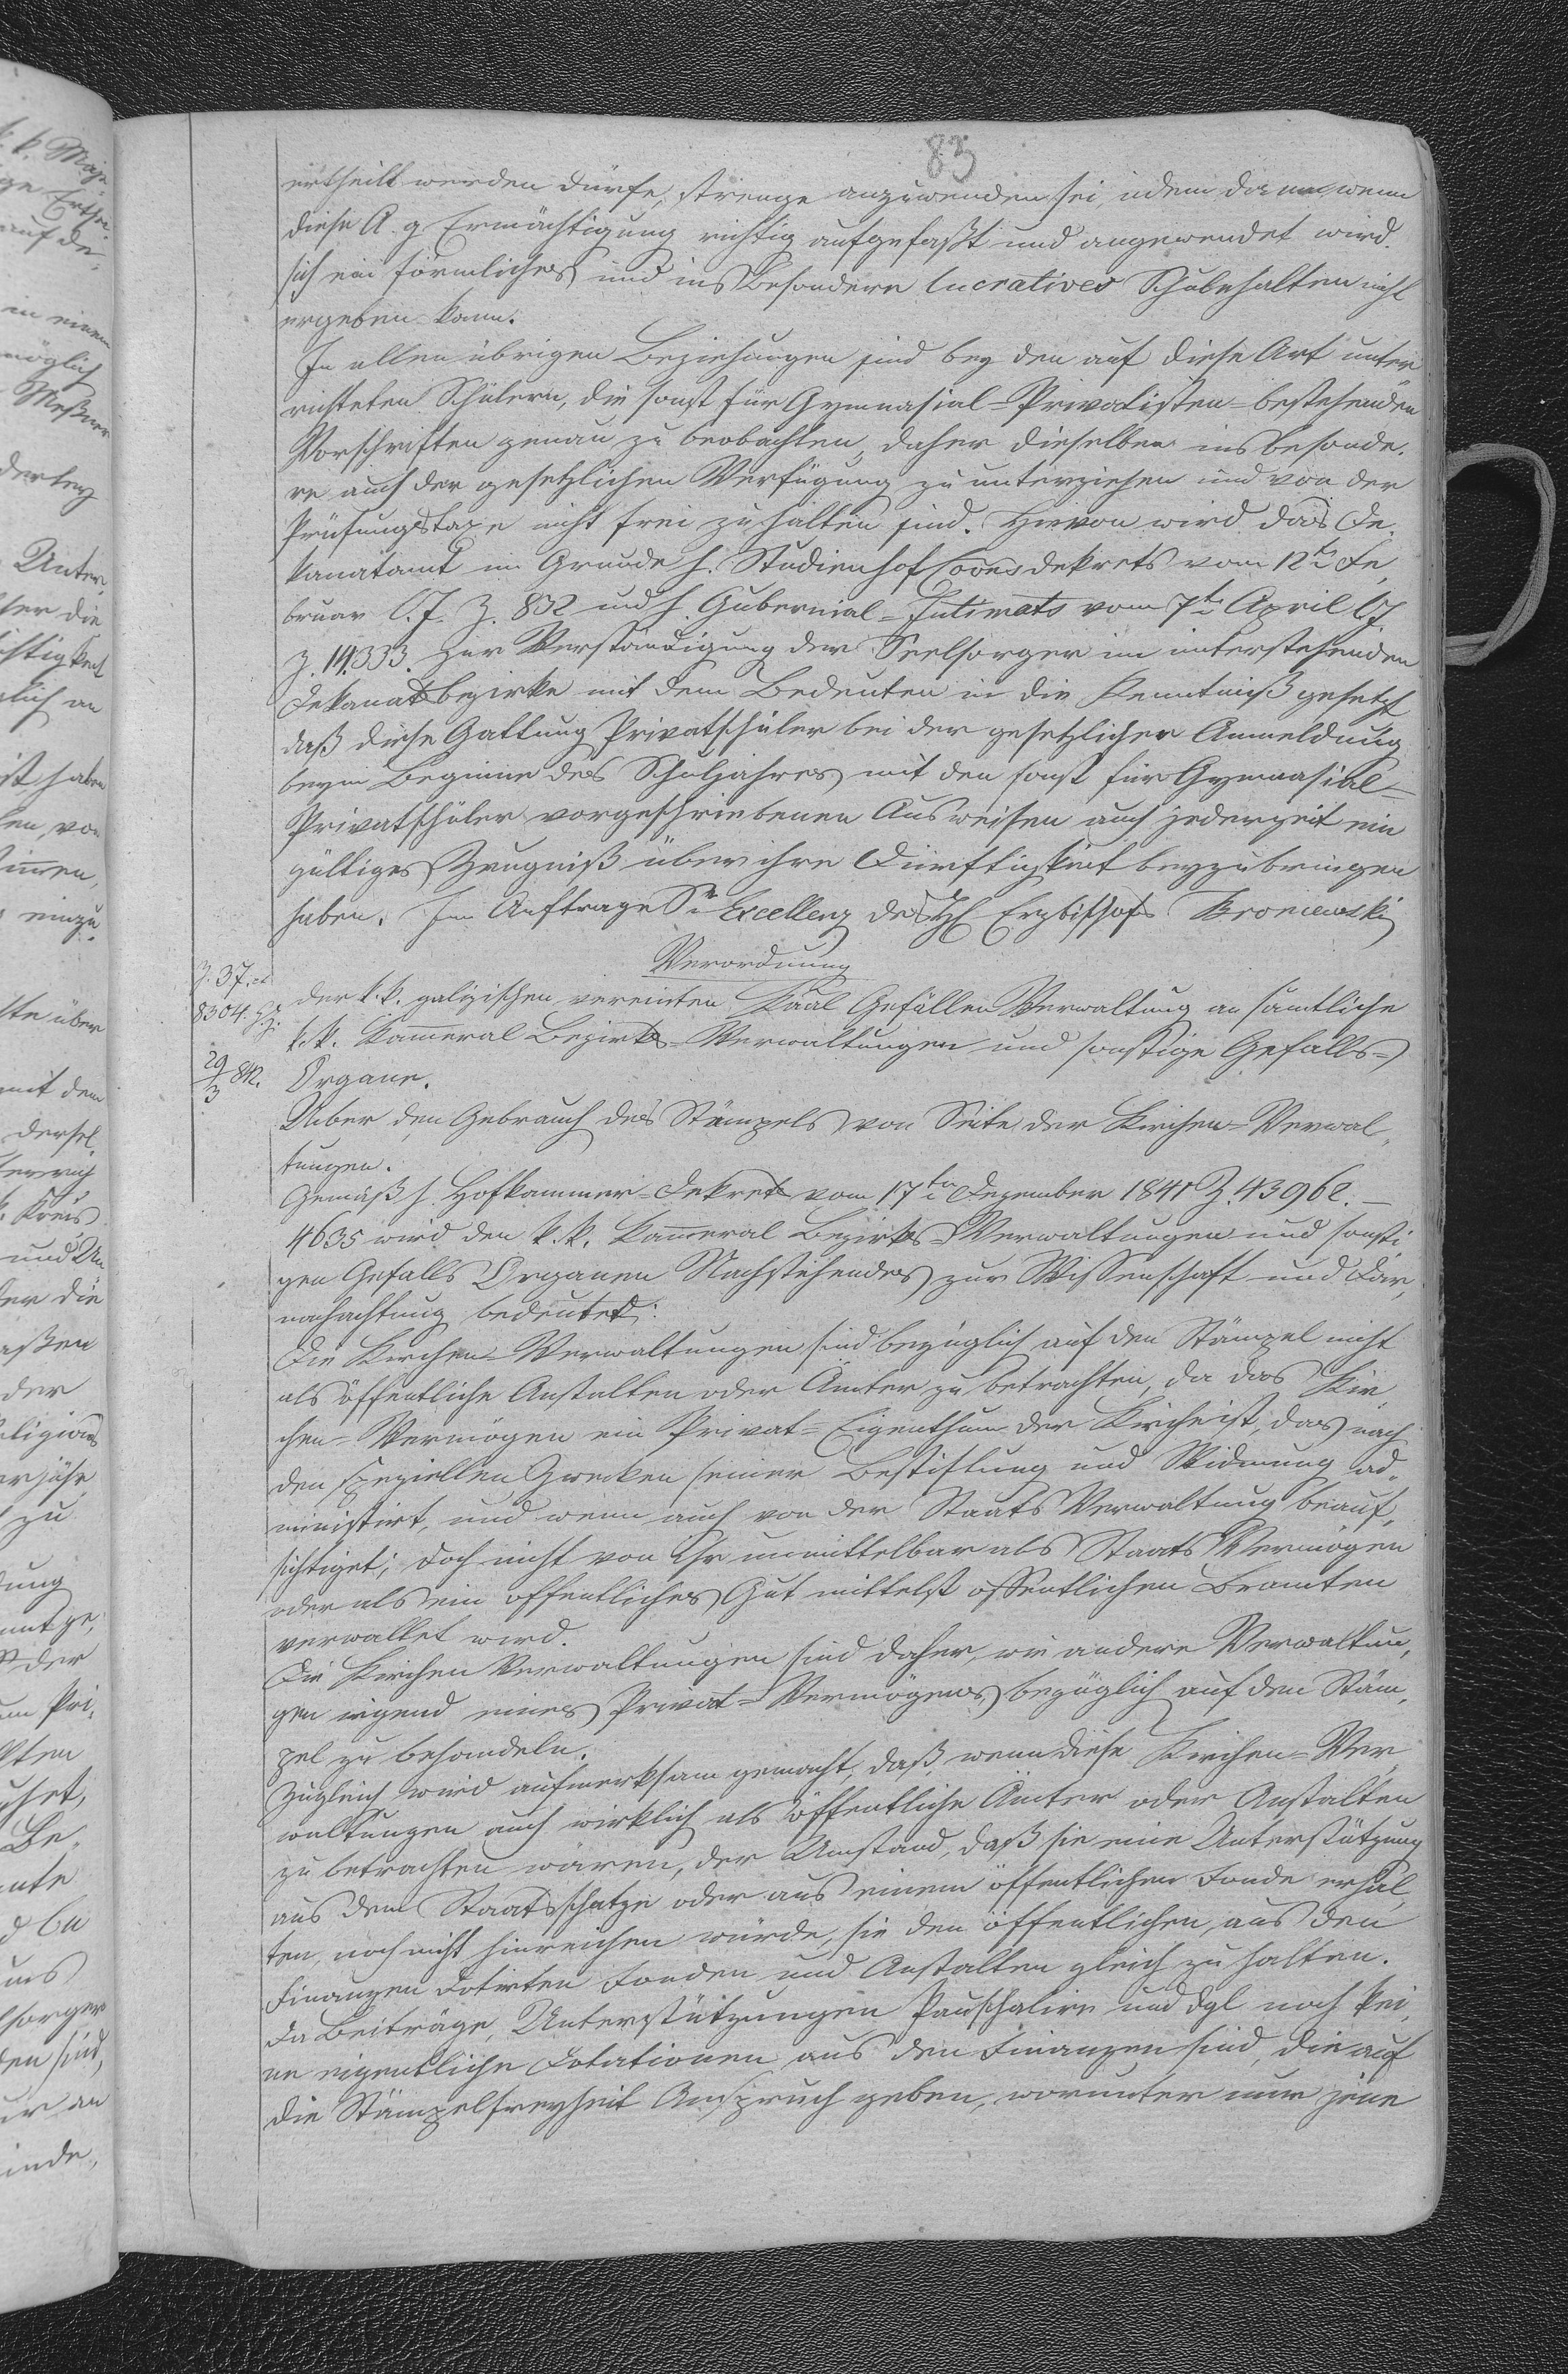 83
ertheilt werden dürfe, strenge anzuwenden sei, indem dann wenn
diese A. g Ermächtigung richtig aufgefaßt und angewendet wird
sich ein förmliches und ins Besondere lucratives Schulehalten nicht
ergeben kann.
In allen übrigen Beziehungen sind bey den auf diese Art unter
richteten Schülern, die sonst für Gymnasial-Privatisten bestehenden
Vorschriften genau zu beobachten, daher dieselben ins besonde,
re auch der gesetzlichen Verfügung zu unterziehen und von der
Prüfungstaxe nicht frei zu halten sind. Hievon wird das De,
kanatamt im Grunde h. Studienhof Coons dekrets vom 12tn Fe,
bruar l. J. Z. 832 und h. Gubernial-Intimats vom 7tn April l J
Z. 14333 zur Verständigung der Seelsorger im unterstehenden
Dekanatsbezirke mit dem Bedeuten in die Kenntniß gesetzt
daß diese Gattung Privatschüler bei der gesetzlichen Anmeldung
beym Beginne des Schuljahres mit den sonst für Gymnasial-
Privatschüler vorgeschriebenen Ausweisen auch jederzeit ein
gültiges Zeugniß über ihre Dürftigkeit beyzubringen
haben. Im Auftrage Sr Excellenz des H Erzbischofs Broniewski
Verordnung
Z. 37.
8304.
29/3 842.
der k. k. galizischen vereinten Kaal Gefällen Verwaltung an sämtliche
k. k. Kammeral Bezirks-Verwaltungen und sonstige Gefalls-
Organe.
Über den Gebrauch des Stämpels von Seite der Kirchen-Verwal,
tungen.
Gemäß h. Hofkammer-Dekrets vom 17tn Dezember 1841 Z. 43962.-
4635 wird den k. k. Kammeral Bezirks-Verwaltungen und sonsti
gen Gefalls Organen Nachstehendes zur Wissenschaft und Dar,
nachachtung bedeutet:
Die Kirchen-Verwaltungen sind bezüglich auf den Stämpel nicht
als öffentliche Anstalten oder Ämter zu betrachten, da das Kir,
chen-Vermögen ein Privat-Eigenthum der Kirche ist, das nach
den speziellen Zwecken seiner Bestiftung und Widmung ad,
ministirt, und wenn auch von der Staats Verwaltung beauf,
sichtiget, doch nicht von ihr unmittelbar als Staats Vermögen
oder als ein öffentliches Gut mittelst öffentlichen Beamten
verwaltet wird.
Die Kirchen Verwaltungen sind daher, wie andere Verwaltun,
gen irgend eines Privat-Vermögens, bezüglich auf den Stäm,
pel zu behandeln.
Zugleich wird aufmerksam gemacht, daß wenn diese Kirchen-Ver,
waltungen auch wirklich als öffentliche Ämter oder Anstalten
zu betrachten wären, der Umstand, daß sie eine Unterstützung
aus dem Staatsschatze oder aus einem öffentlichen Fonde erhal,
ten, noch nicht hinreichen würde, sie den öffentlichen, aus den
Finanzen dotirten Fonden und Anstalten gleich zu halten.
Da Beiträge, Unterstützungen Pauschalien und dgl noch kei,
ne eigentliche Dotationen aus den Finanzen sind, die auf
die Stämpelfreyheit Anspruch geben, worunter nur jene